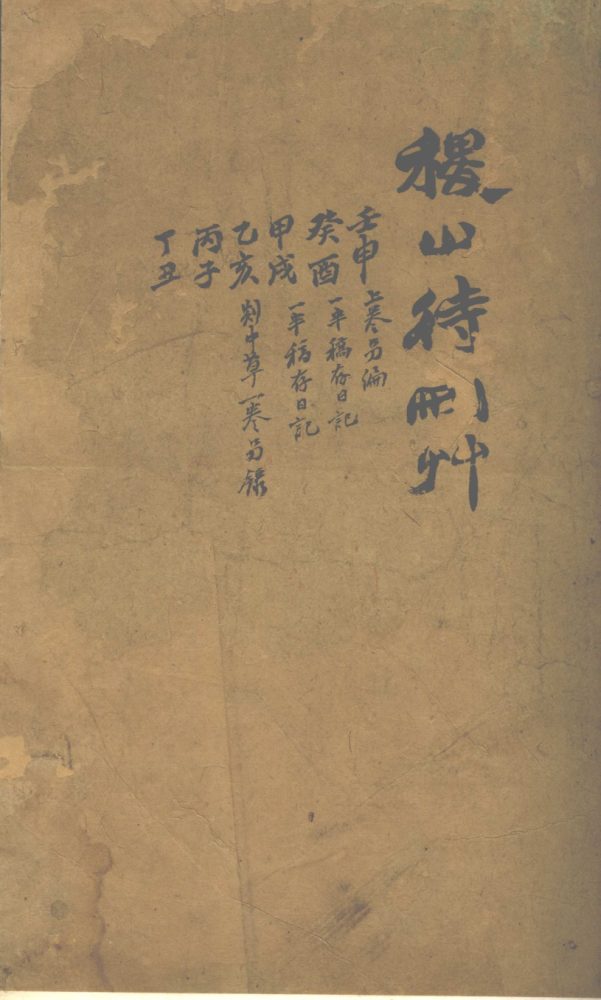 稷山待刪艸
壬申 上卷另編
癸酉 一年稿存日記
甲戌 一年稿存日記
乙亥 剡中草一卷另錄
丙子
丁丑